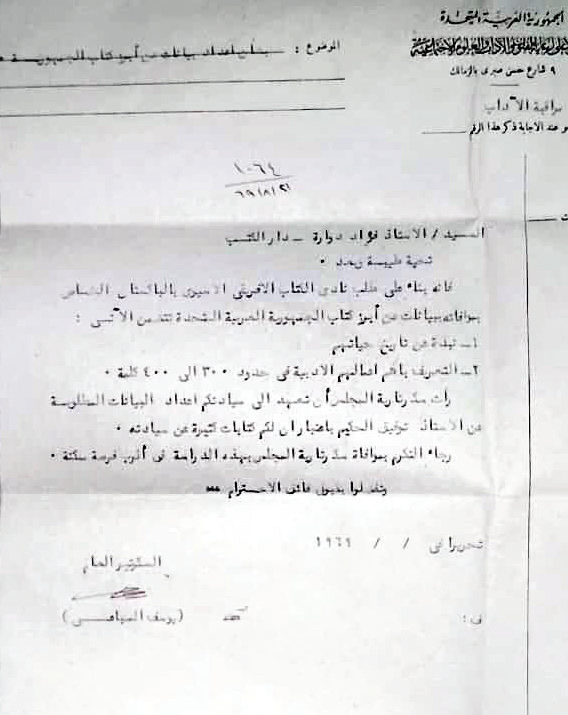 الجمهورية العربية المتحدة
المجلس الأعلى لرعاية الفنون والآداب والعلوم الاجتماعية
٩ شارع حسن صبرى بالزمالك
مراقبة الآداب
عند الاجابة ذكر هذا الرقم
الموضوع : بشأن اعداد بيانات عن أبرز كتاب الجمهورية
١٠٦٤
٦٩/٨/٢١
السيد / الاستاذ فؤاد دوارة ــ دار الكتب
تحية طيبة وبعد ٠
فانه بناء على طلب نادى الكتاب الافريقى الاسيوى بالباكستان الخاص
بموافاته ببيانات عن أبرز كتاب الجمهورية العربية المتحدة تتضمن الآتــى :
١ــ نبذة عن تاريخ حياتهم
٢ــ التعريف باهم اعمالهم الادبية فى حدود ٣٠٠ الى ٤٠٠ كلمة ٠
رأت سكرتارية المجلس أن تعهد الى سيادتكم اعداد البيانات المطلوبة
عن الاستاذ توفيق الحكيم باعتبار ان لكم كتابات كثيرة عن سيادته ٠
رجاء التكرم بموافاة سكرتارية المجلس بهذه الدراسة فى أقرب فرصة ممكنة ٠
وتفضلوا بقبول فائق الاحترام ٠٠٠
تحريرا فى / / ١٩٦٩
السكرتير العام
(يوسف السباعــى)
فى :